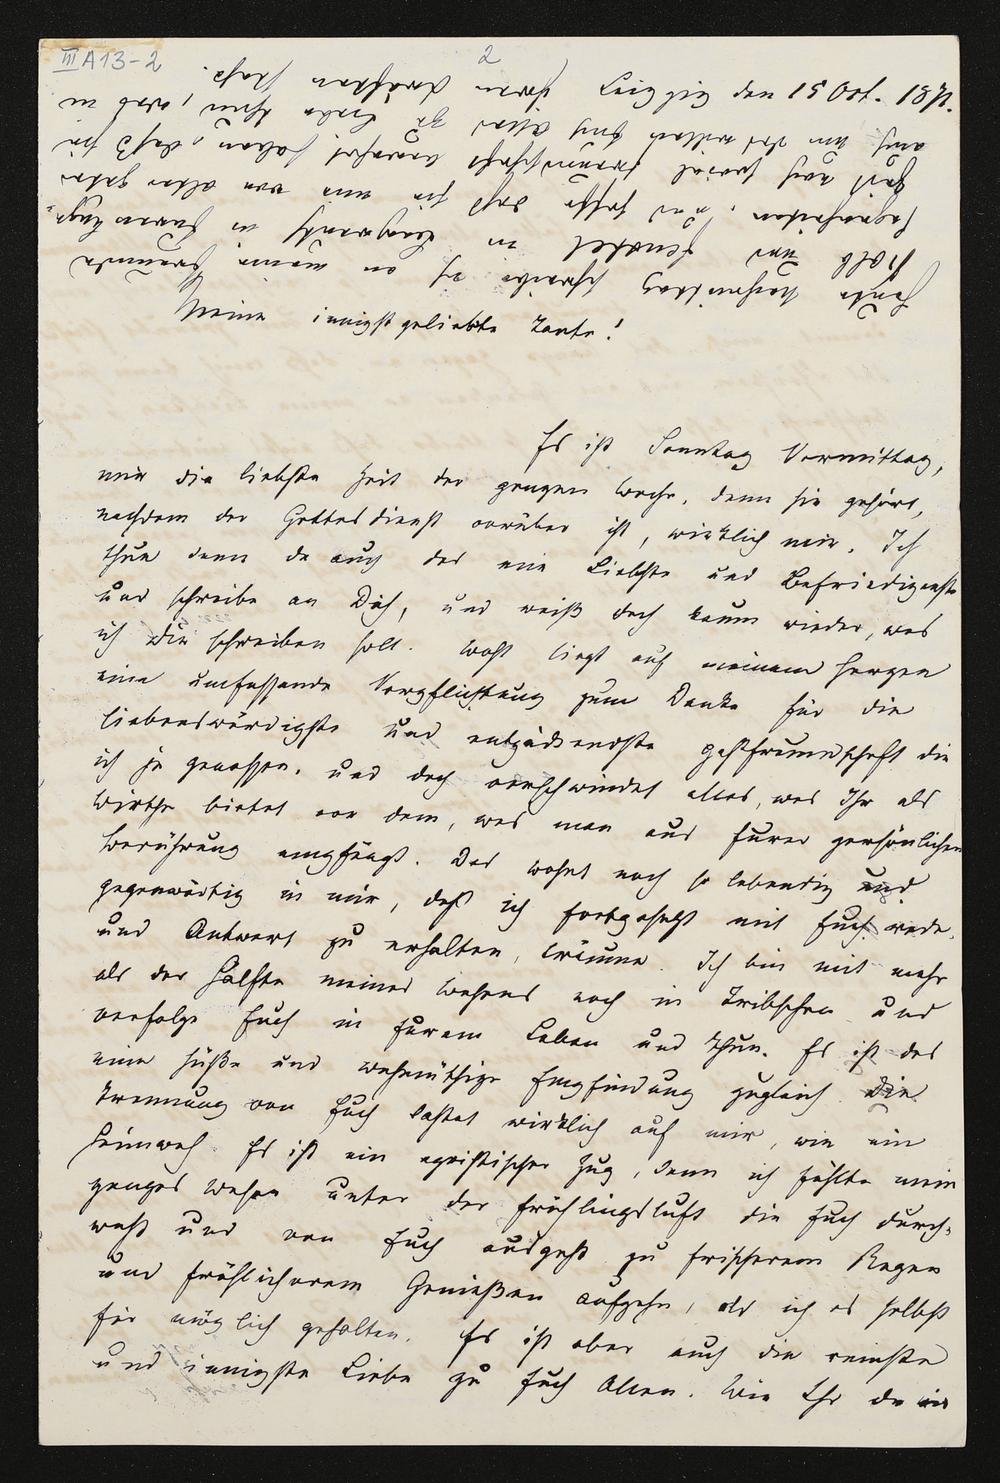 III A 13-2
2
Leipzig den 15 Oct. 1871.
Meine innigst geliebte Tante!
Es ist Sonntag Vormittag,
mir die liebste Zeit der ganzen Woche, denn sie gehört,
nachdem der Gottesdienst vorüber ist, wirklich mir. Ich
thue denn da auch das mir Liebste und Befriedigendste
und schreibe an Dich, und weiß doch kaum wieder, was
ich Dir schreiben soll. Wohl liegt auf meinem Herzen
eine umfassende Verpflichtung zum Danke für die
liebenswürdigste und entzückendste Gastfreundschaft die
ich je genossen, und doch verschwindet alles, was Ihr als
Wirthe bietet vor dem, was man aus Eurer persönlichen
Berührung empfängt. Das wohnt noch so lebendig und
gegenwärtig in mir, daß ich fortgesetzt mit Euch rede,
und Antwort zu erhalten, träume. Ich bin mit mehr
als der Hälfte meines Wesens noch in Tribschen und
verfolge Euch in Eurem Leben und Thun. Es ist das
eine süße und wehmüthige Empfindung zugleich. Die
Trennung von Euch lastet wirklich auf mir, wie ein
Heimweh. Es ist ein egoistischer Zug, denn ich fühlte mein
ganzes Wesen unter der Frühlingsluft die Euch durch-
weht und von Euch ausgeht zu frischerem Regen
und fröhlicherem Genießen aufgehn, als ich es selbst
für möglich gehalten. Es ist aber auch die reinste
und innigste Liebe zu Euch Allen. Wie Ihr da